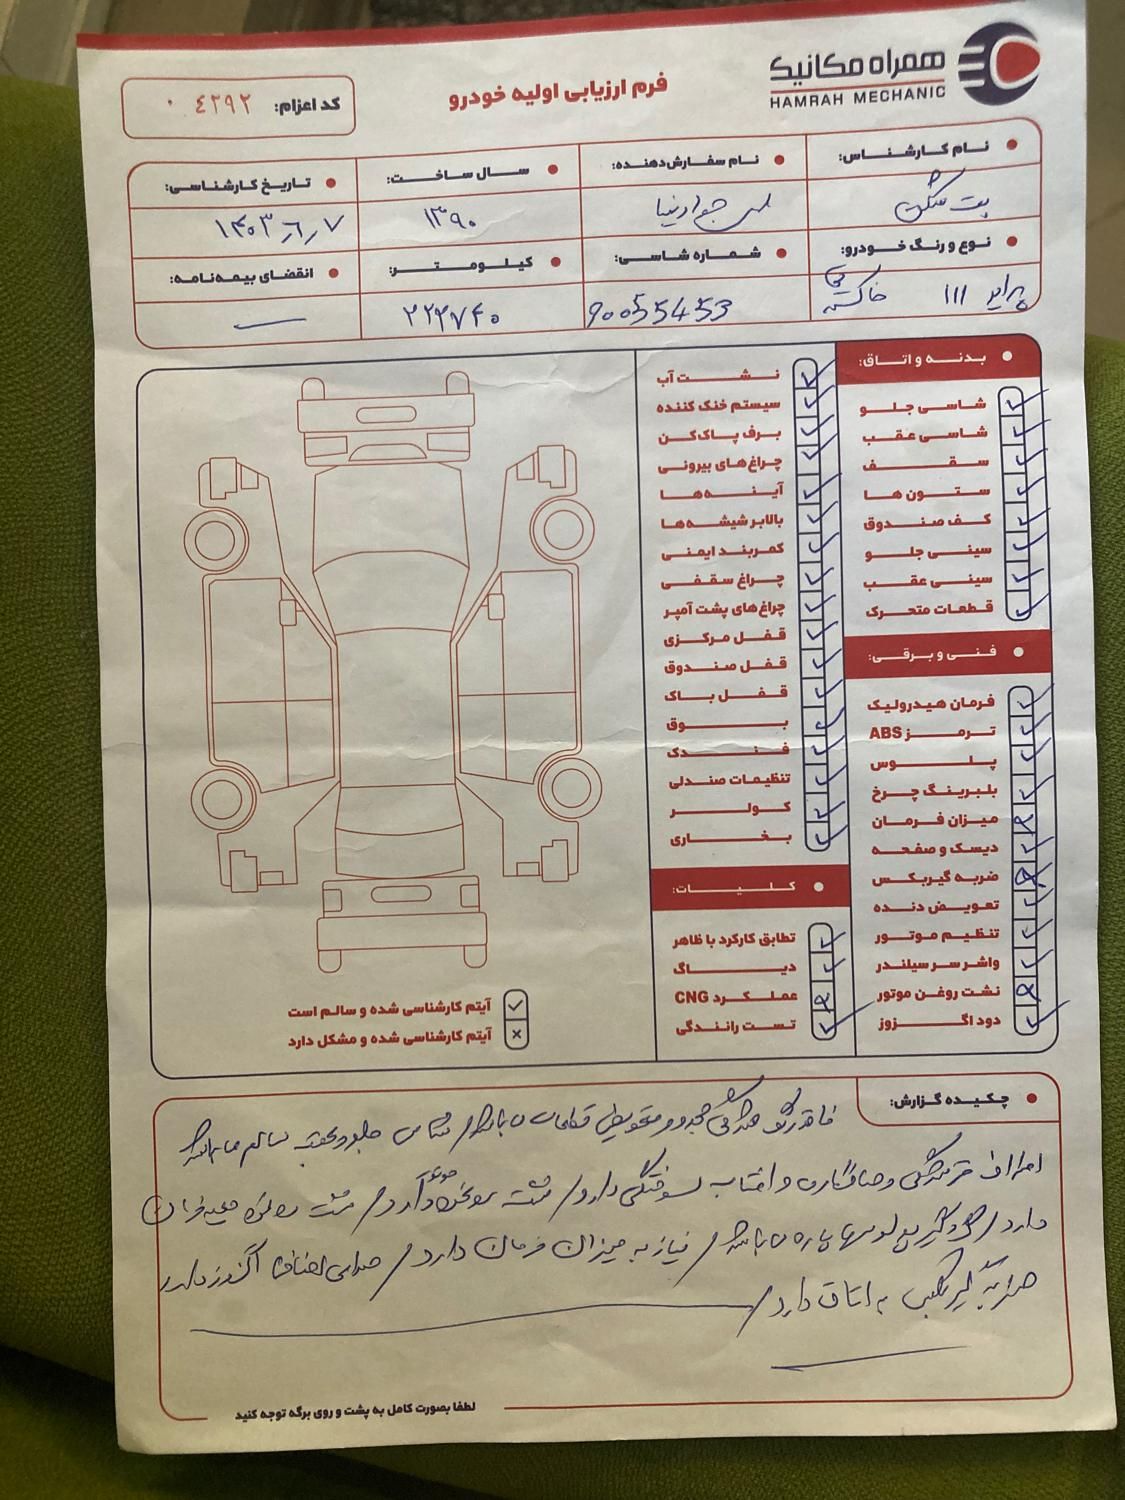 همراه مکانیک
HAMRAH MECHANIC
فرم ارزیابی اولیه خودرو
کد اعزام: ۰ ٤٢٩٢
نام کارشناس:
نام سفارش‌دهنده:
سال ساخت:
تاریخ کارشناسی:
بت شکن
جوادنیا
۱۳۹۰
۱۴۰۳٫۶٫۷
نوع و رنگ خودرو:
شماره شاسی:
کیلومتر:
انقضای بیمه‌نامه:
پراید ۱۱۱ خاکستری
90055453
۲۲۲۷۴۰
بدنه و اتاق:
شاسی جلو
شاسی عقب
سقف
ستون ها
کف صندوق
سینی جلو
سینی عقب
قطعات متحرک
فنی و برقی:
فرمان هیدرولیک
ترمز ABS
پلوس
بلبرینگ چرخ
میزان فرمان
دیسک و صفحه
ضربه گیربکس
تعویض دنده
تنظیم موتور
واشر سر سیلندر
نشت روغن موتور
دود اگزوز
نشت آب
سیستم خنک کننده
برف پاک‌کن
چراغ‌های بیرونی
آینه‌ها
بالابر شیشه‌ها
کمربند ایمنی
چراغ سقفی
چراغ‌های پشت آمپر
قفل مرکزی
قفل صندوق
قفل باک
بوق
فندک
تنظیمات صندلی
کولر
بخاری
کلیات:
تطابق کارکرد با ظاهر
دیاگ
عملکرد CNG
تست رانندگی
آیتم کارشناسی شده و سالم است
آیتم کارشناسی شده و مشکل دارد
چکیده گزارش:
فاقد رنگ شدگی و تعویض قطعات می باشد / شاسی جلو و عقب سالم می باشد
اطراف خط و خش و صافکاری و آفتاب سوختگی دارد / نشت روغن موتور دارد / نشت روغن جعبه فرمان
دارد / گردگیر پلوسها پاره می باشد / نیاز به میزان فرمان دارد / صدای اضافه اگزوز دارد
ضربه گیربکس به اتاق دارد /
لطفا بصورت کامل به پشت و روی برگه توجه کنید